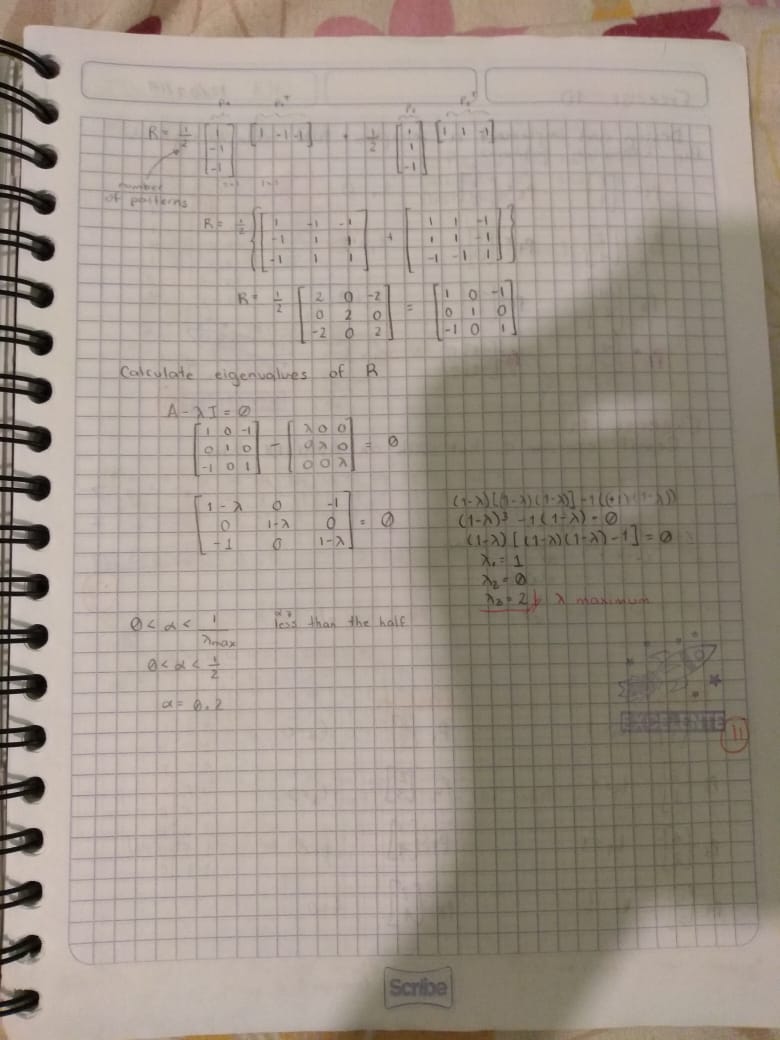 R = 1/2 [1 -1 -1] [1 -1 -1] + 1/2 [1 1 -1] [1 1 -1]
number
of patterns
R = 1/2 { [1 -1 -1; -1 1 1; -1 1 1] + [1 1 -1; 1 1 -1; -1 -1 1] }
R = 1/2 [2 0 -2; 0 2 0; -2 0 2] = [1 0 -1; 0 1 0; -1 0 1]
Calculate eigenvalues of R
A - λI = 0
[1 0 -1; 0 1 0; -1 0 1] - [λ 0 0; 0 λ 0; 0 0 λ] = 0
[1-λ 0 -1; 0 1-λ 0; -1 0 1-λ] = 0
(1-λ)³ - 1(1-λ) = 0
(1-λ)[(1-λ)(1-λ) - 1] = 0
λ₁ = 1
λ₂ = 0
λ₃ = 2 λ maximum
0 < α < 1/λmax less than the half
0 < α < 1/2
α = 0.2
EXCELENTE
11
Scribe